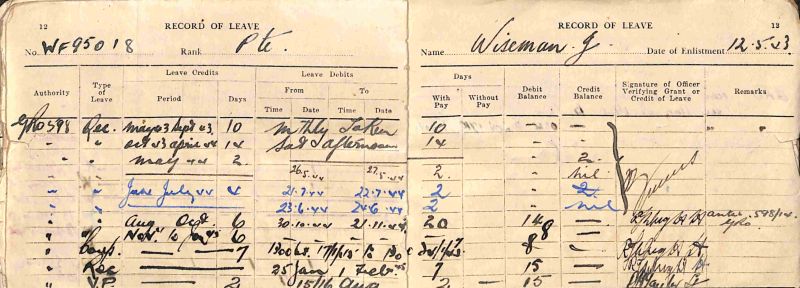 12 RECORD OF LEAVE RECORD OF LEAVE 13
No. WF95018 Rank Pte. Name Wiseman. J Date of Enlistment 12.5.43
Authority Type of Leave Leave Credits Leave Debits Days Debit Balance Credit Balance Signature of Officer Verifying Grant or Credit of Leave Remarks
Period Days From To With Pay Without Pay
Time Date Time Date
GRO 598 Rec. may 43 Sept 43. 10 mthly Taken 10 - —
" " oct 43 april 44 14 Sat afternoon 14 - —
" " may 44 2 — - 2
26.5.44 27.5.44 2. - nil
" " June July 44 4 21.7.44 22.7.44 2 - 2
" " 23.6.44 24.6.44 2 - nil
" " Aug Oct. 6 30.10.44 21.11.44 20 14 — 598/14
" " Nov. 44 to 45 6 8
" — 7 1300 8 —
" Rec — 25 Jan 1 Feb 45 7 15 —
" V.P — 2 15/16 Aug 2 — 15 —